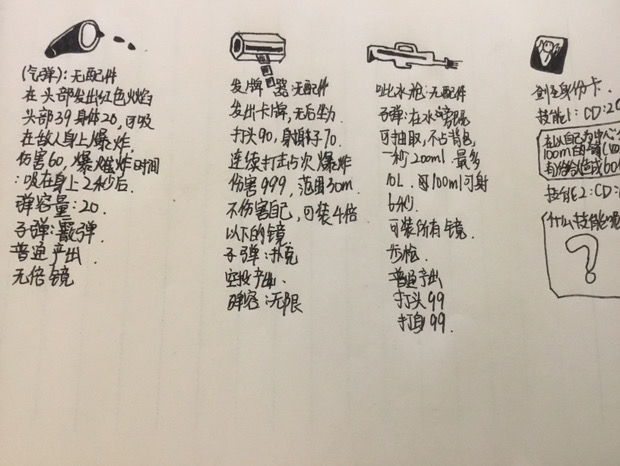 (气弹): 无配件
在头部发出红色火焰
头部39身体20, 可吸
在敌人身上爆炸
伤害60, 爆炸时间
: 吸在身上2秒后.
弹容量: 20.
子弹: 霰弹.
普通产出
无倍镜
发牌器: 无配件
发出卡牌, 无后坐力.
打头90, 身体70.
连续打击5次爆炸
伤害999, 范围30m
不伤害自己, 可装4倍
以下的镜
子弹: 扑克
空投产出.
弹容: 无限
呲水枪: 无配件
子弹: 在水旁
可抽取, 不占背包
一秒200ml. 最多
10L. 每100ml可射
6秒.
可装所有镜.
步枪.
普通产出
打头99
打身99.
身份卡.
技能1: CD: 20
在以自己为中心
100m的
技能2: CD:
什么技能呢
?